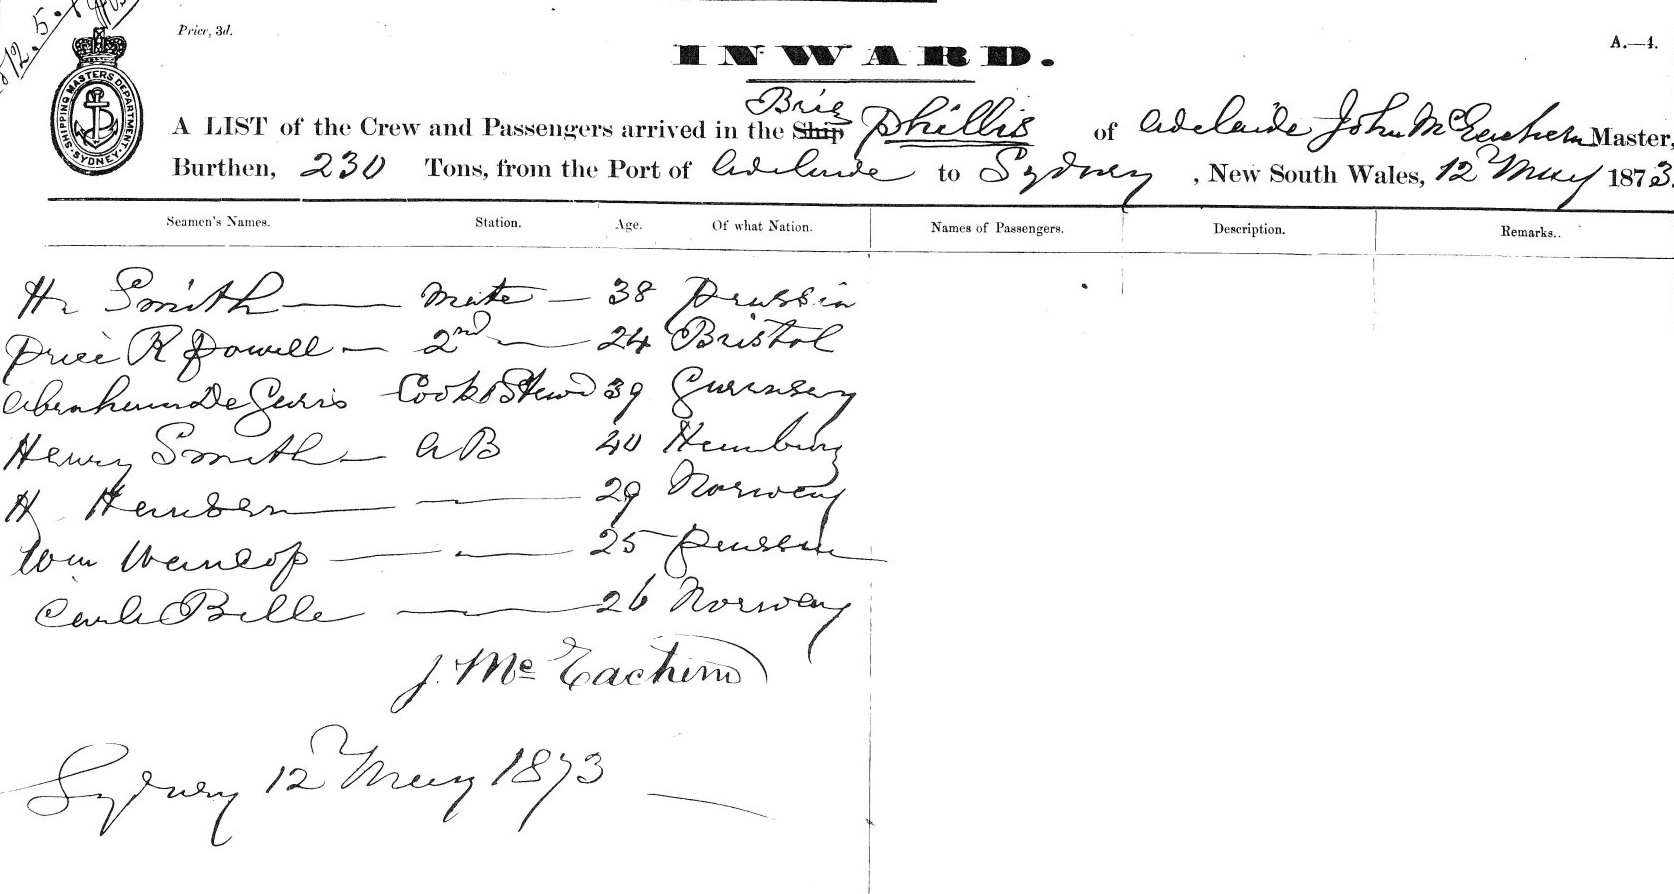 12.5.
Price, 3d.
A.—4.
SHIPPING MASTERS DEPARTMENT. SYDNEY
INWARD.
Brig
A LIST of the Crew and Passengers arrived in the Ship Phillis of Adelaide John McEachern Master,
Burthen, 230 Tons, from the Port of Adelaide to Sydney, New South Wales, 12 May 1873.
Seamen's Names. Station. Age. Of what Nation. Names of Passengers. Description. Remarks..
Hr Smith — Mate — 38 Prussia
Price R Powell — 2nd — 24 Bristol
Abraham De Gerris Cook & Stewd 39 Guernsey
Henry Smith — AB 40 Hamburg
H — — 29 Norway
Wm — — 25 Prussia
Carl Bille — 26 Norway
J. McEachern
Sydney 12 May 1873 —